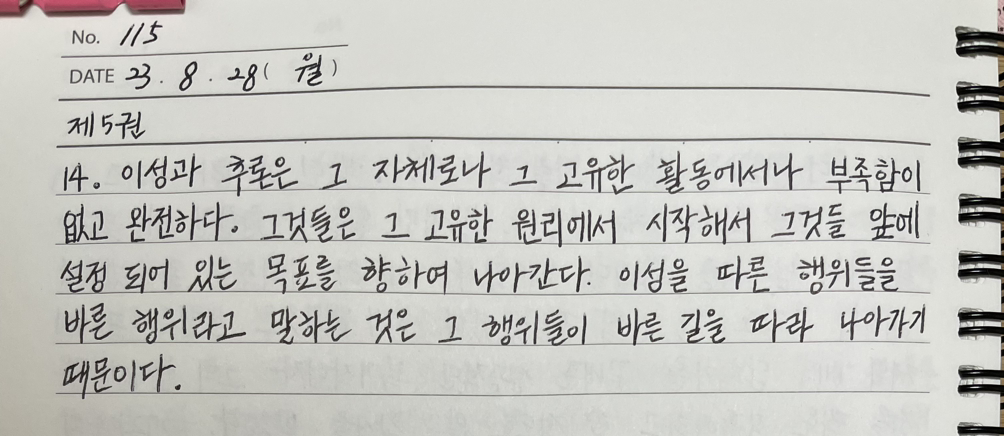 No. 115
DATE 23. 8. 28( 월)
제5권
14. 이성과 추론은 그 자체로나 그 고유한 활동에서나 부족함이
없고 완전하다. 그것들은 그 고유한 원리에서 시작해서 그것들 앞에
설정 되어 있는 목표를 향하여 나아간다. 이성을 따른 행위들을
바른 행위라고 말하는 것은 그 행위들이 바른 길을 따라 나아가기
때문이다.